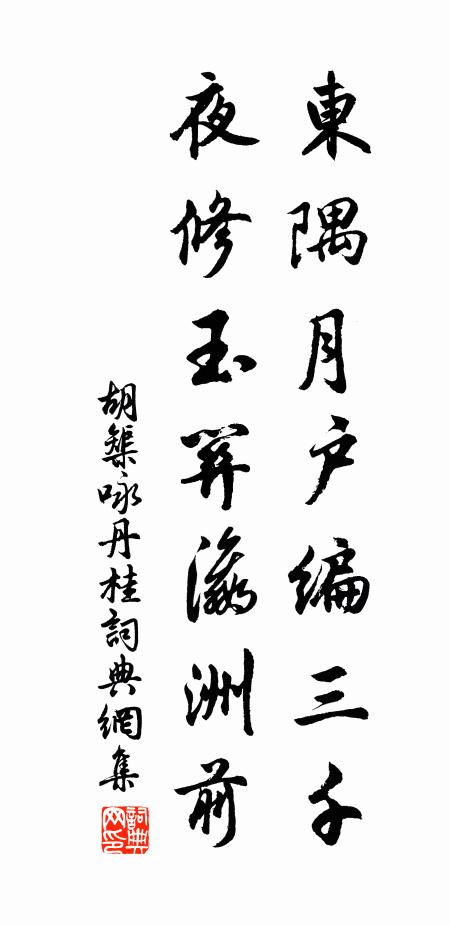 東隅月户編三千
夜修玉斧瀛洲前
胡榘咏丹桂詞典網集
詞典网印